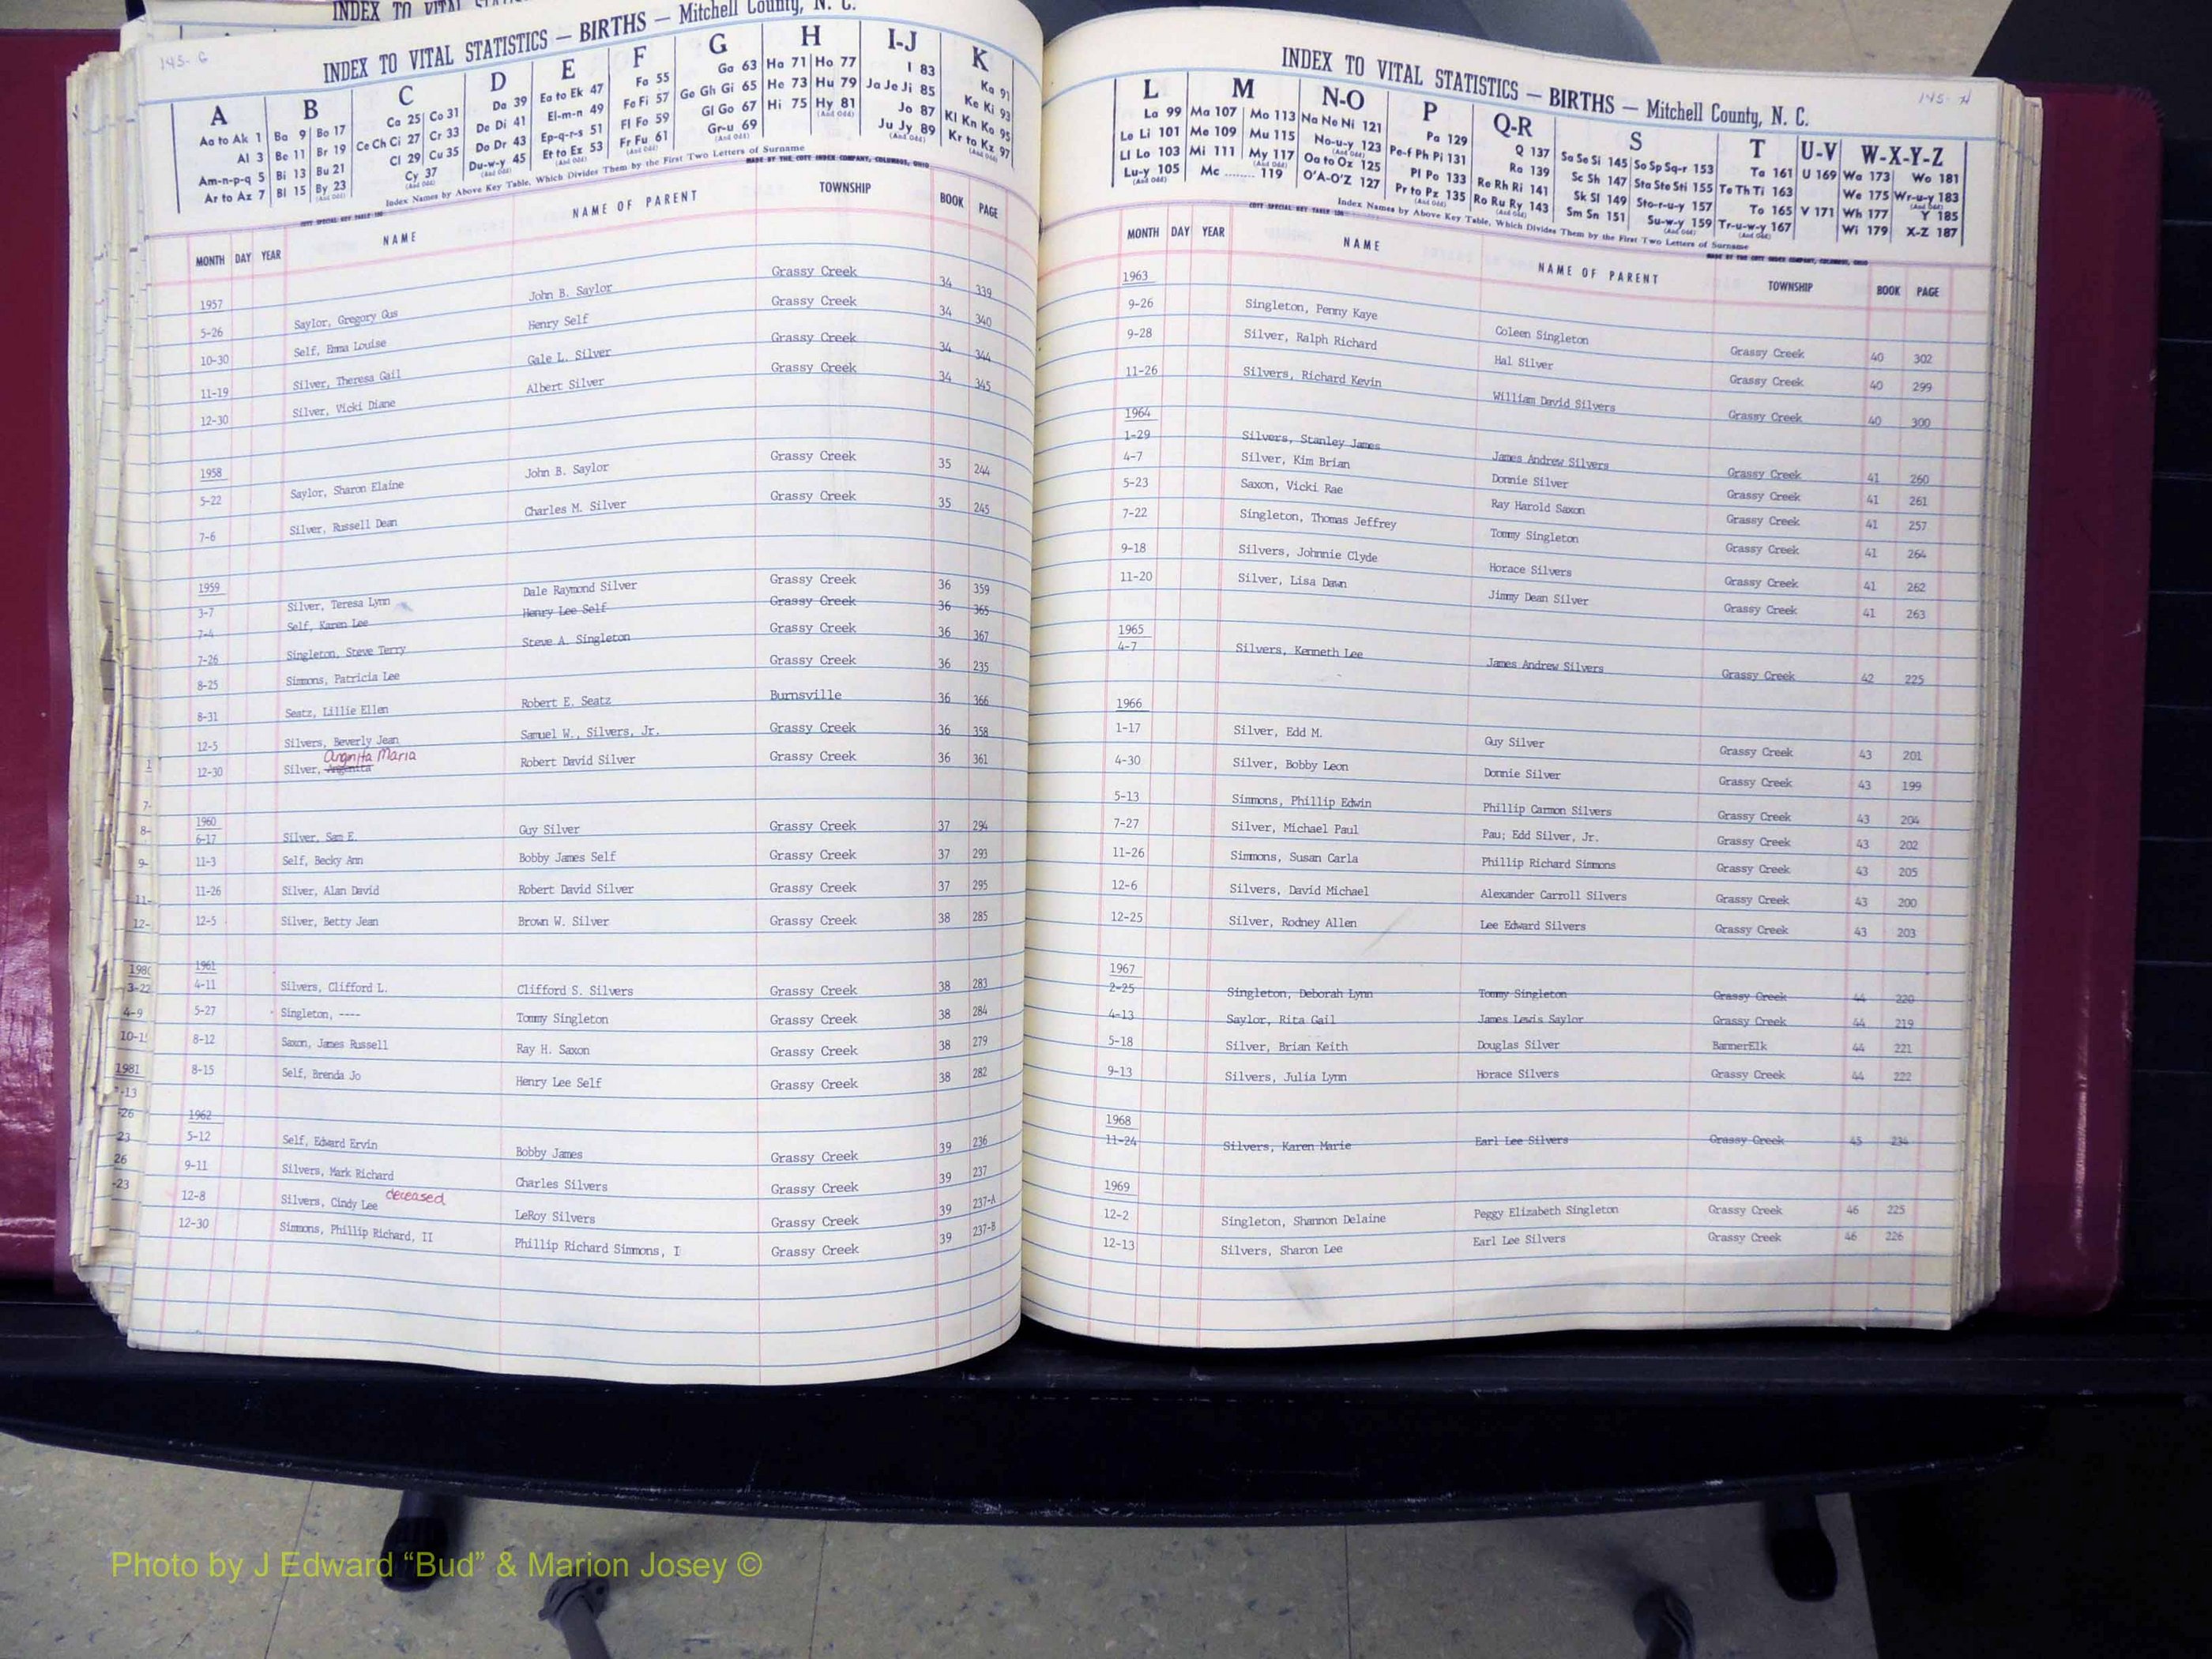 INDEX TO VITAL
145- G
INDEX TO VITAL STATISTICS — BIRTHS — Mitchell County, N. C.
A B C D E F G H I-J K
Aa to Ak 1 Ba 9 Bo 17 Ca 25 Co 31 Da 39 Ea to Ek 47 Fa 55 Ga 63 Ha 71 Ho 77 I 83 Ka 91
Al 3 Be 11 Br 19 Ce Ch Ci 27 Cr 33 De Di 41 El-m-n 49 Fe Fi 57 Ge Gh Gi 65 He 73 Hu 79 Ja Je Ji 85 Ke Ki 93
Am-n-p-q 5 Bi 13 Bu 21 Cl 29 Cu 35 Do Dr 43 Ep-q-r-s 51 Fl Fo 59 Gl Go 67 Hi 75 Hy 81 Jo 87 Kl Kn Ko 95
Ar to Az 7 Bl 15 By 23 Cy 37 Du-w-y 45 Et to Ex 53 Fr Fu 61 Gr-u 69 Ju Jy 89 Kr to Kz 97
Index Names by Above Key Table, Which Divides Them by the First Two Letters of Surname
MADE BY THE COTT INDEX COMPANY, COLUMBUS, OHIO
MONTH DAY YEAR NAME NAME OF PARENT TOWNSHIP BOOK PAGE
1957
5-26 Saylor, Gregory Gus John B. Saylor Grassy Creek 34 339
10-30 Self, Emma Louise Henry Self Grassy Creek 34 340
11-19 Silver, Theresa Gail Gale L. Silver Grassy Creek 34 344
12-30 Silver, Vicki Diane Albert Silver Grassy Creek 34 345
1958
5-22 Saylor, Sharon Elaine John B. Saylor Grassy Creek 35 244
7-6 Silver, Russell Dean Charles M. Silver Grassy Creek 35 245
1959
3-7 Silver, Teresa Lynn Dale Raymond Silver Grassy Creek 36 359
7-4 Self, Karen Lee Henry Lee Self Grassy Creek 36 365
7-26 Singleton, Steve Terry Steve A. Singleton Grassy Creek 36 367
8-25 Simmons, Patricia Lee Grassy Creek 36 235
8-31 Seatz, Lillie Ellen Robert E. Seatz Burnsville 36 366
12-5 Silvers, Beverly Jean Samuel W., Silvers, Jr. Grassy Creek 36 358
Angnita Maria
12-30 Silver, Robert David Silver Grassy Creek 36 361
1960
6-17 Silver, Sam E. Guy Silver Grassy Creek 37 294
11-3 Self, Becky Ann Bobby James Self Grassy Creek 37 293
11-26 Silver, Alan David Robert David Silver Grassy Creek 37 295
12-5 Silver, Betty Jean Brown W. Silver Grassy Creek 38 285
1961
4-11 Silvers, Clifford L. Clifford S. Silvers Grassy Creek 38 283
5-27 Singleton, ---- Tommy Singleton Grassy Creek 38 284
8-12 Saxon, James Russell Ray H. Saxon Grassy Creek 38 279
8-15 Self, Brenda Jo Henry Lee Self Grassy Creek 38 282
1962
5-12 Self, Edward Ervin Bobby James Grassy Creek 39 236
9-11 Silvers, Mark Richard Charles Silvers Grassy Creek 39 237
12-8 Silvers, Cindy Lee deceased LeRoy Silvers Grassy Creek 39 237-A
12-30 Simmons, Phillip Richard, II Phillip Richard Simmons, I Grassy Creek 39 237-B
1
7-
8-
9-
11-
12-
198
3-22
4-9
10-1
1981
-13
-26
23
26
-23
145- H
INDEX TO VITAL STATISTICS — BIRTHS — Mitchell County, N. C.
L M N-O P Q-R S T U-V W-X-Y-Z
La 99 Ma 107 Mo 113 Na Ne Ni 121 Pa 129 Q 137 Sa Se Si 145 So Sp Sq-r 153 Ta 161 U 169 Wa 173 Wo 181
Le Li 101 Me 109 Mu 115 No-u-y 123 Pe-f Ph Pi 131 Ra 139 Sc Sh 147 Sta Ste Sti 155 Te Th Ti 163 We 175 Wr-u-y 183
Ll Lo 103 Mi 111 My 117 Oa to Oz 125 Pl Po 133 Re Rh Ri 141 Sk Sl 149 Sto-r-u-y 157 To 165 V 171 Wh 177 Y 185
Lu-y 105 Mc ........ 119 O'A-O'Z 127 Pr to Pz 135 Ro Ru Ry 143 Sm Sn 151 Su-w-y 159 Tr-u-w-y 167 Wi 179 X-Z 187
Index Names by Above Key Table, Which Divides Them by the First Two Letters of Surname
MADE BY THE COTT INDEX COMPANY, COLUMBUS, OHIO
MONTH DAY YEAR NAME NAME OF PARENT TOWNSHIP BOOK PAGE
1963
9-26 Singleton, Penny Kaye Coleen Singleton Grassy Creek 40 302
9-28 Silver, Ralph Richard Hal Silver Grassy Creek 40 299
11-26 Silvers, Richard Kevin William David Silvers Grassy Creek 40 300
1964
1-29 Silvers, Stanley James James Andrew Silvers Grassy Creek 41 260
4-7 Silver, Kim Brian Donnie Silver Grassy Creek 41 261
5-23 Saxon, Vicki Rae Ray Harold Saxon Grassy Creek 41 257
7-22 Singleton, Thomas Jeffrey Tommy Singleton Grassy Creek 41 264
9-18 Silvers, Johnnie Clyde Horace Silvers Grassy Creek 41 262
11-20 Silver, Lisa Dawn Jimmy Dean Silver Grassy Creek 41 263
1965
4-7 Silvers, Kenneth Lee James Andrew Silvers Grassy Creek 42 225
1966
1-17 Silver, Edd M. Guy Silver Grassy Creek 43 201
4-30 Silver, Bobby Leon Donnie Silver Grassy Creek 43 199
5-13 Simmons, Phillip Edwin Phillip Carmon Silvers Grassy Creek 43 204
7-27 Silver, Michael Paul Pau; Edd Silver, Jr. Grassy Creek 43 202
11-26 Simmons, Susan Carla Phillip Richard Simmons Grassy Creek 43 205
12-6 Silvers, David Michael Alexander Carroll Silvers Grassy Creek 43 200
12-25 Silver, Rodney Allen Lee Edward Silvers Grassy Creek 43 203
1967
2-25 Singleton, Deborah Lynn Tommy Singleton Grassy Creek 44 220
4-13 Saylor, Rita Gail James Lewis Saylor Grassy Creek 44 219
5-18 Silver, Brian Keith Douglas Silver BannerElk 44 221
9-13 Silvers, Julia Lynn Horace Silvers Grassy Creek 44 222
1968
11-24 Silvers, Karen Marie Earl Lee Silvers Grassy Creek 45 234
1969
12-2 Singleton, Shannon Delaine Peggy Elizabeth Singleton Grassy Creek 46 225
12-13 Silvers, Sharon Lee Earl Lee Silvers Grassy Creek 46 226
Photo by J Edward “Bud” & Marion Josey ©